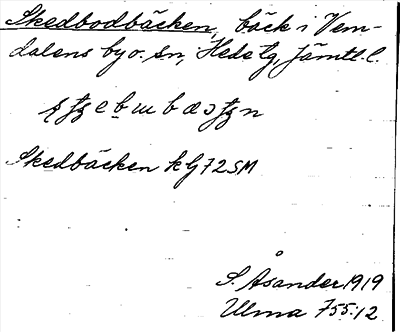 Skedbodbäcken, bäck i Vem-
dalens by o. sn, Hede tg, Jämtl. l.
Skedbäcken kG72SM
S. Åsander 1919
Ulma 755:12